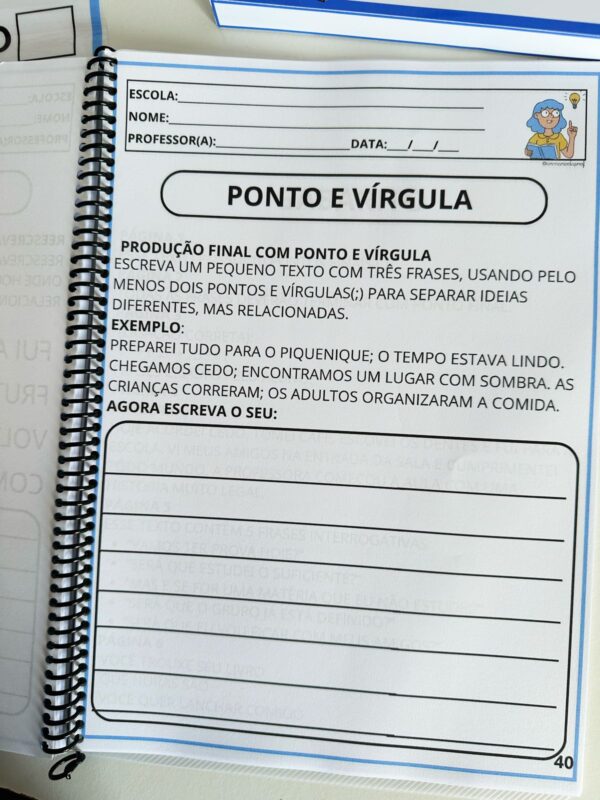 ESCOLA:
NOME:
PROFESSOR(A): DATA: / /
PONTO E VÍRGULA
PRODUÇÃO FINAL COM PONTO E VÍRGULA
ESCREVA UM PEQUENO TEXTO COM TRÊS FRASES, USANDO PELO
MENOS DOIS PONTOS E VÍRGULAS(;) PARA SEPARAR IDEIAS
DIFERENTES, MAS RELACIONADAS.
EXEMPLO:
PREPAREI TUDO PARA O PIQUENIQUE; O TEMPO ESTAVA LINDO.
CHEGAMOS CEDO; ENCONTRAMOS UM LUGAR COM SOMBRA. AS
CRIANÇAS CORRERAM; OS ADULTOS ORGANIZARAM A COMIDA.
AGORA ESCREVA O SEU:
40